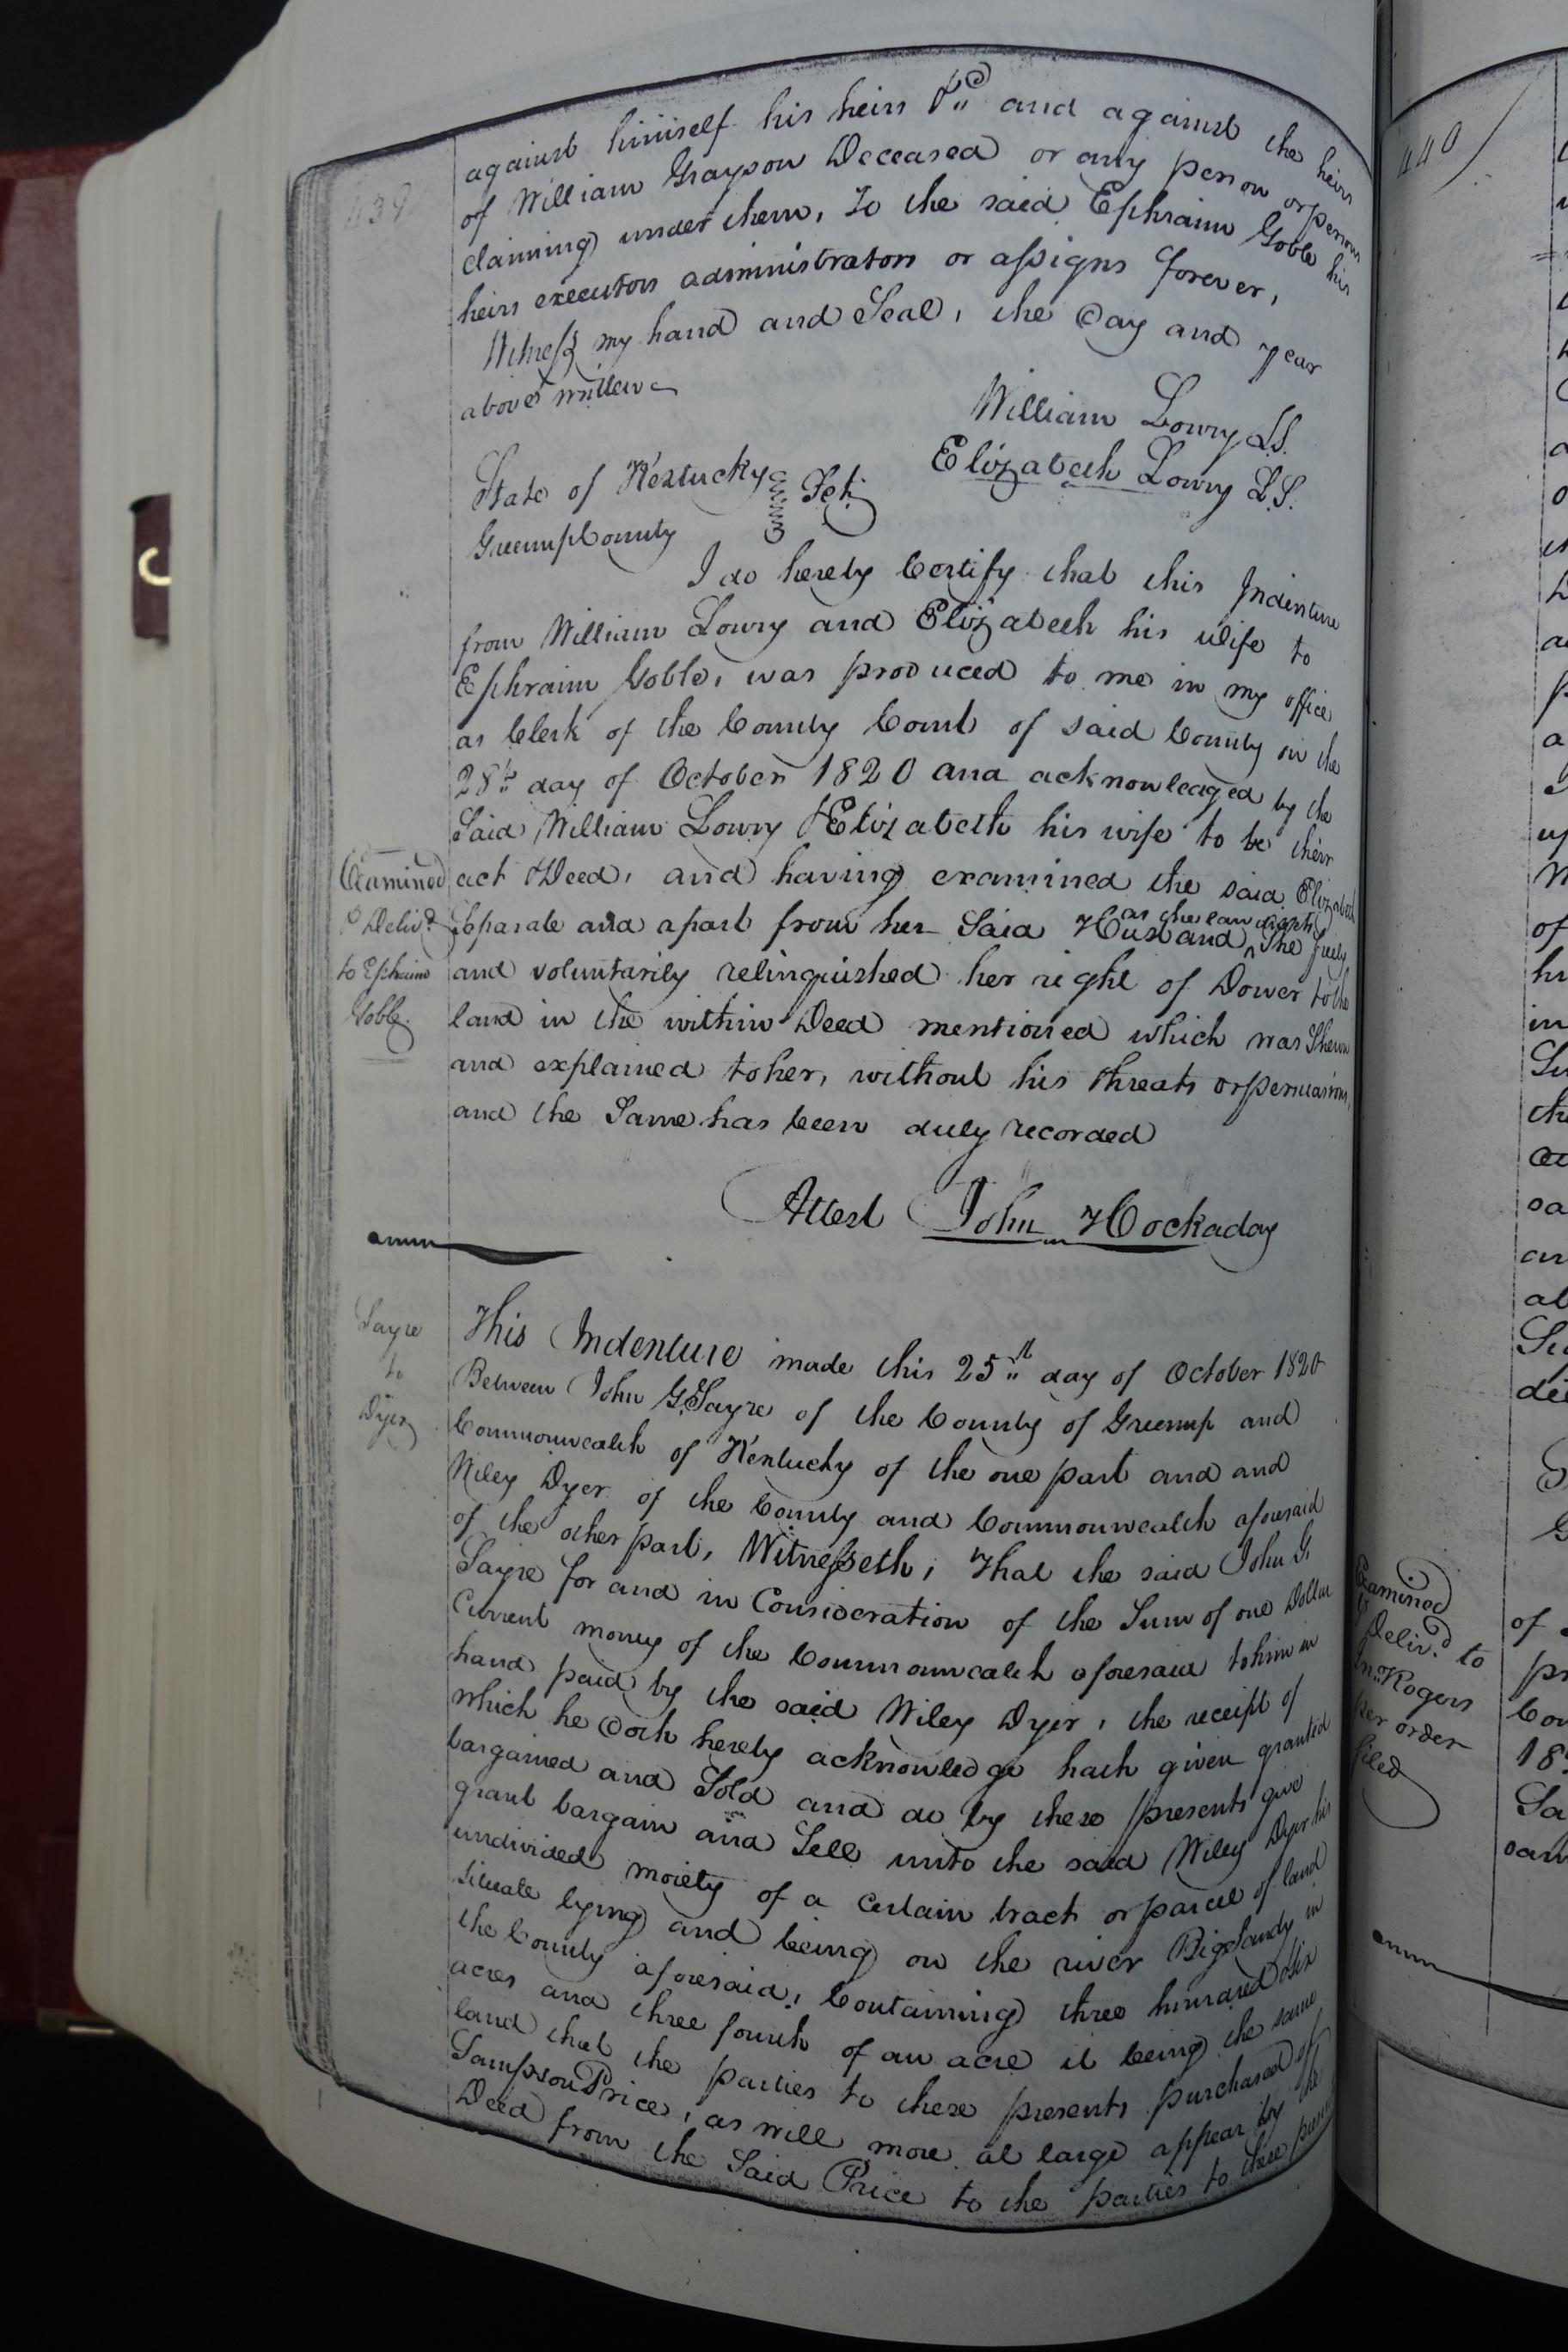 439
against himself his heirs &c and against the heirs
of William Grayson Deceased or any person or persons
claiming under them, to the said Ephraim Goble his
heirs executors administrators or assigns forever,
Witness my hand and Seal, the Day and year
above written
William Lowry L.S.
Elizabeth Lowry L.S.
State of Kentucky
Greenup County Sct.
I do hereby Certify that this Indenture
from William Lowry and Elizabeth his wife to
Ephraim Goble, was produced to me in my office
as Clerk of the County Court of said County on the
28th day of October 1820 and acknowledged by the
Said William Lowry & Elizabeth his wife to be their
act & Deed, and having examined the said Elizabeth
Separate and apart from her Said Husband, as the law directs She freely
and voluntarily relinquished her right of Dower to the
land in the within Deed mentioned which was Shewn
and explained to her, without his threats or persuasions,
and the Same has been duly recorded
Attest John Hockaday
Examined
& Deliv.d
to Ephraim
Goble.
Sayre
to
Dyer
This Indenture made this 25th day of October 1820
Between John G. Sayre of the County of Greenup and
Commonwealth of Kentucky of the one part and and
Wiley Dyer of the County and Commonwealth aforesaid
of the other part, Witnesseth, That the said John G.
Sayre for and in Consideration of the Sum of one Dollar
Current money of the Commonwealth aforesaid to him in
hand paid by the said Wiley Dyer, the receipt of
which he Doth hereby acknowledge hath given granted
bargained and Sold and do by these presents give
grant bargain and Sell unto the said Wiley Dyer his
undivided moiety of a certain tract or parcel of land
Situate lying and being on the river Big Sandy in
the County aforesaid, Containing three hundred & Six
acres and three fourth of an acre it being the same
land that the parties to these presents purchased of
Sampson Price, as will more at large appear by the
Deed from the Said Price to the parties to these presents
440
Examined
& Deliv.d to
Jno. Rogers
per order
filed